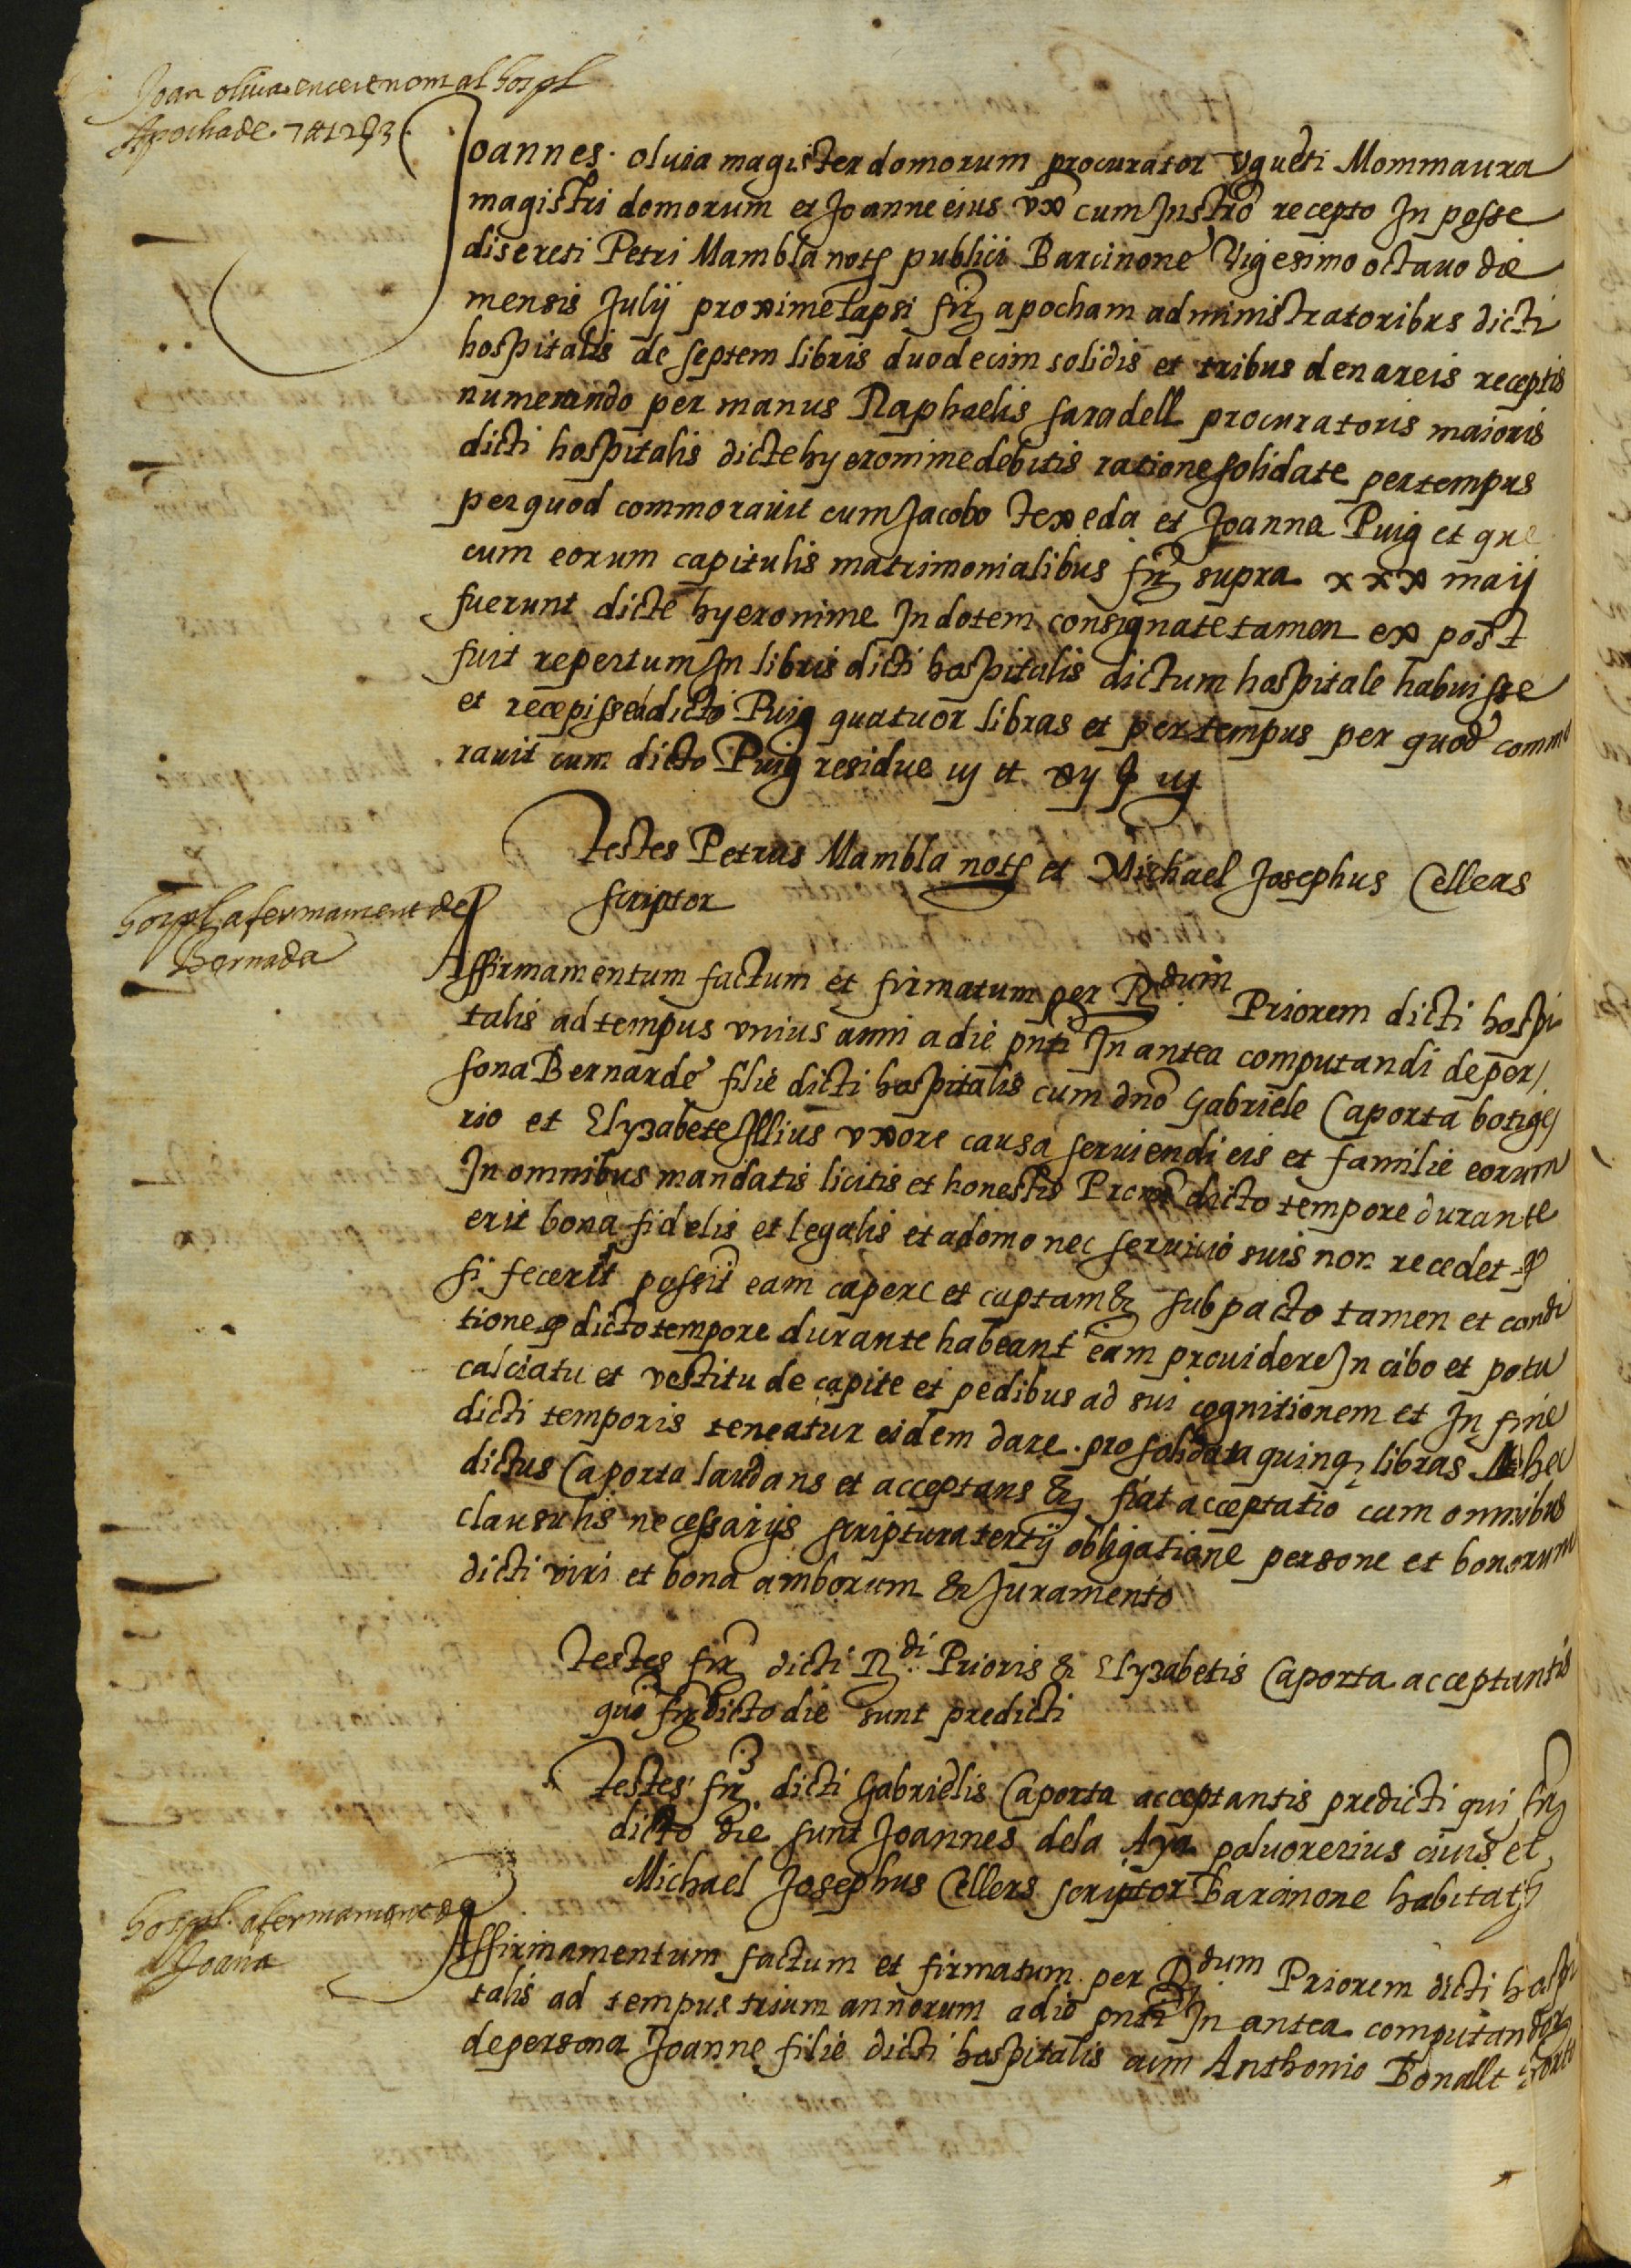 Joan oliva en cert nom al hospl
Apocha de 7 ₶ 12 ș 3
Joannes oliuia magister domorum procurator vgueti Mommaura
magistri domorum et Joanne eius vx̄ cum Instrō recepto In posse
discreti Petri Mambla notȷ publici Barcinone Vigesimo octauo die
mensis Julij proxime lapsi firȝ apocham administratoribus dicti
hospitalis de septem libris duodecim solidis et tribus denareis receptis
numerando per manus Raphaelis saradell procuratoris maioris
dicti hospitalis dicte hyeronime debitis ratione solidate per tempus
per quod commorauit cum Jacobo texeda et Joanna Puig et que
cum eorum capitulis matrimonialibus firȝ supra xxx maij
fuerunt dicte hyeronime In dotem consignate tamen ex post
fuit repertum In libris dicti hospitalis dictum hospitale habuisse
et recepisse a dicto Puig quatuor libras et per tempus per quod commo
rauit cum dicto Puig residue iij ₶ xij ș iij
Testes Petrus Mambla notȷ et Michael Josephus Cellers
scriptor
hospl afermament de
Bernada
Affirmamentum factum et firmatum per R.dum Priorem dicti hospi
talis ad tempus vnius anni a die pn̄ti In antea computandi de per
sona Bernarde filie dicti hospitalis cum dn̄o Gabriele Caporta botige
rio et Elyzabete Illius vxore causa seruiendi eis et familie eorum
In omnibus mandatis licitis et honestis dicto tempore durante
erit bona fidelis et legalis et a domo nec seruitio suis non recedet q̄
si fecerit possit eam capere et captam &ȝ sub pacto tamen et condi
tione q̄ dicto tempore durante habeant eam prouidere In cibo et potu
calciatu et vestitu de capite et pedibus ad sui cognitionem et In fine
dicti temporis teneatur eidem dare pro solidata quinqȝ libras Ad hec
dictus Caporta laudans et acceptans &ȝ fiat acceptatio cum omnibus
clausulis necessarijs scriptura tertij obligatione persone et bonorum
dicti viri et bona amborum & Juramento
Testes firȝ dicti R.di Prioris & Elyzabetis Caporta acceptantis
qui firȝ dicto die sunt predicti
Testes firȝ dicti Gabrielis Caporta acceptantis predicti qui firȝ
dicto die sunt Joannes dela Aya poluorerius ciuis et
Michael Josephus Cellers scriptor Barcinone habitatȝ
hospl. afermament de
Joana
Affirmamentum factum et firmatum per R.dum Priorem dicti hospi
talis ad tempus trium annorum a die pn̄ti In antea computandorȝ
de persona Joanne filie dicti hospitalis cum Anthonio Bonallt